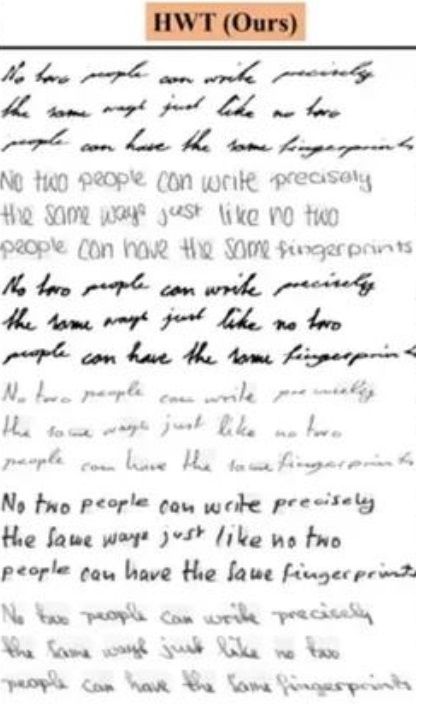 HWT (Ours)
No two people can write precisely
the same ways just like no two
people can have the same fingerprints
No two people can write precisely
the same ways just like no two
people can have the same fingerprints
No two people can write precisely
the same ways just like no two
people can have the same fingerprints
No two people can write precisely
the same ways just like no two
people can have the same fingerprints
No two people can write precisely
the same ways just like no two
people can have the same fingerprints
No two people can write precisely
the same ways just like no two
people can have the same fingerprints